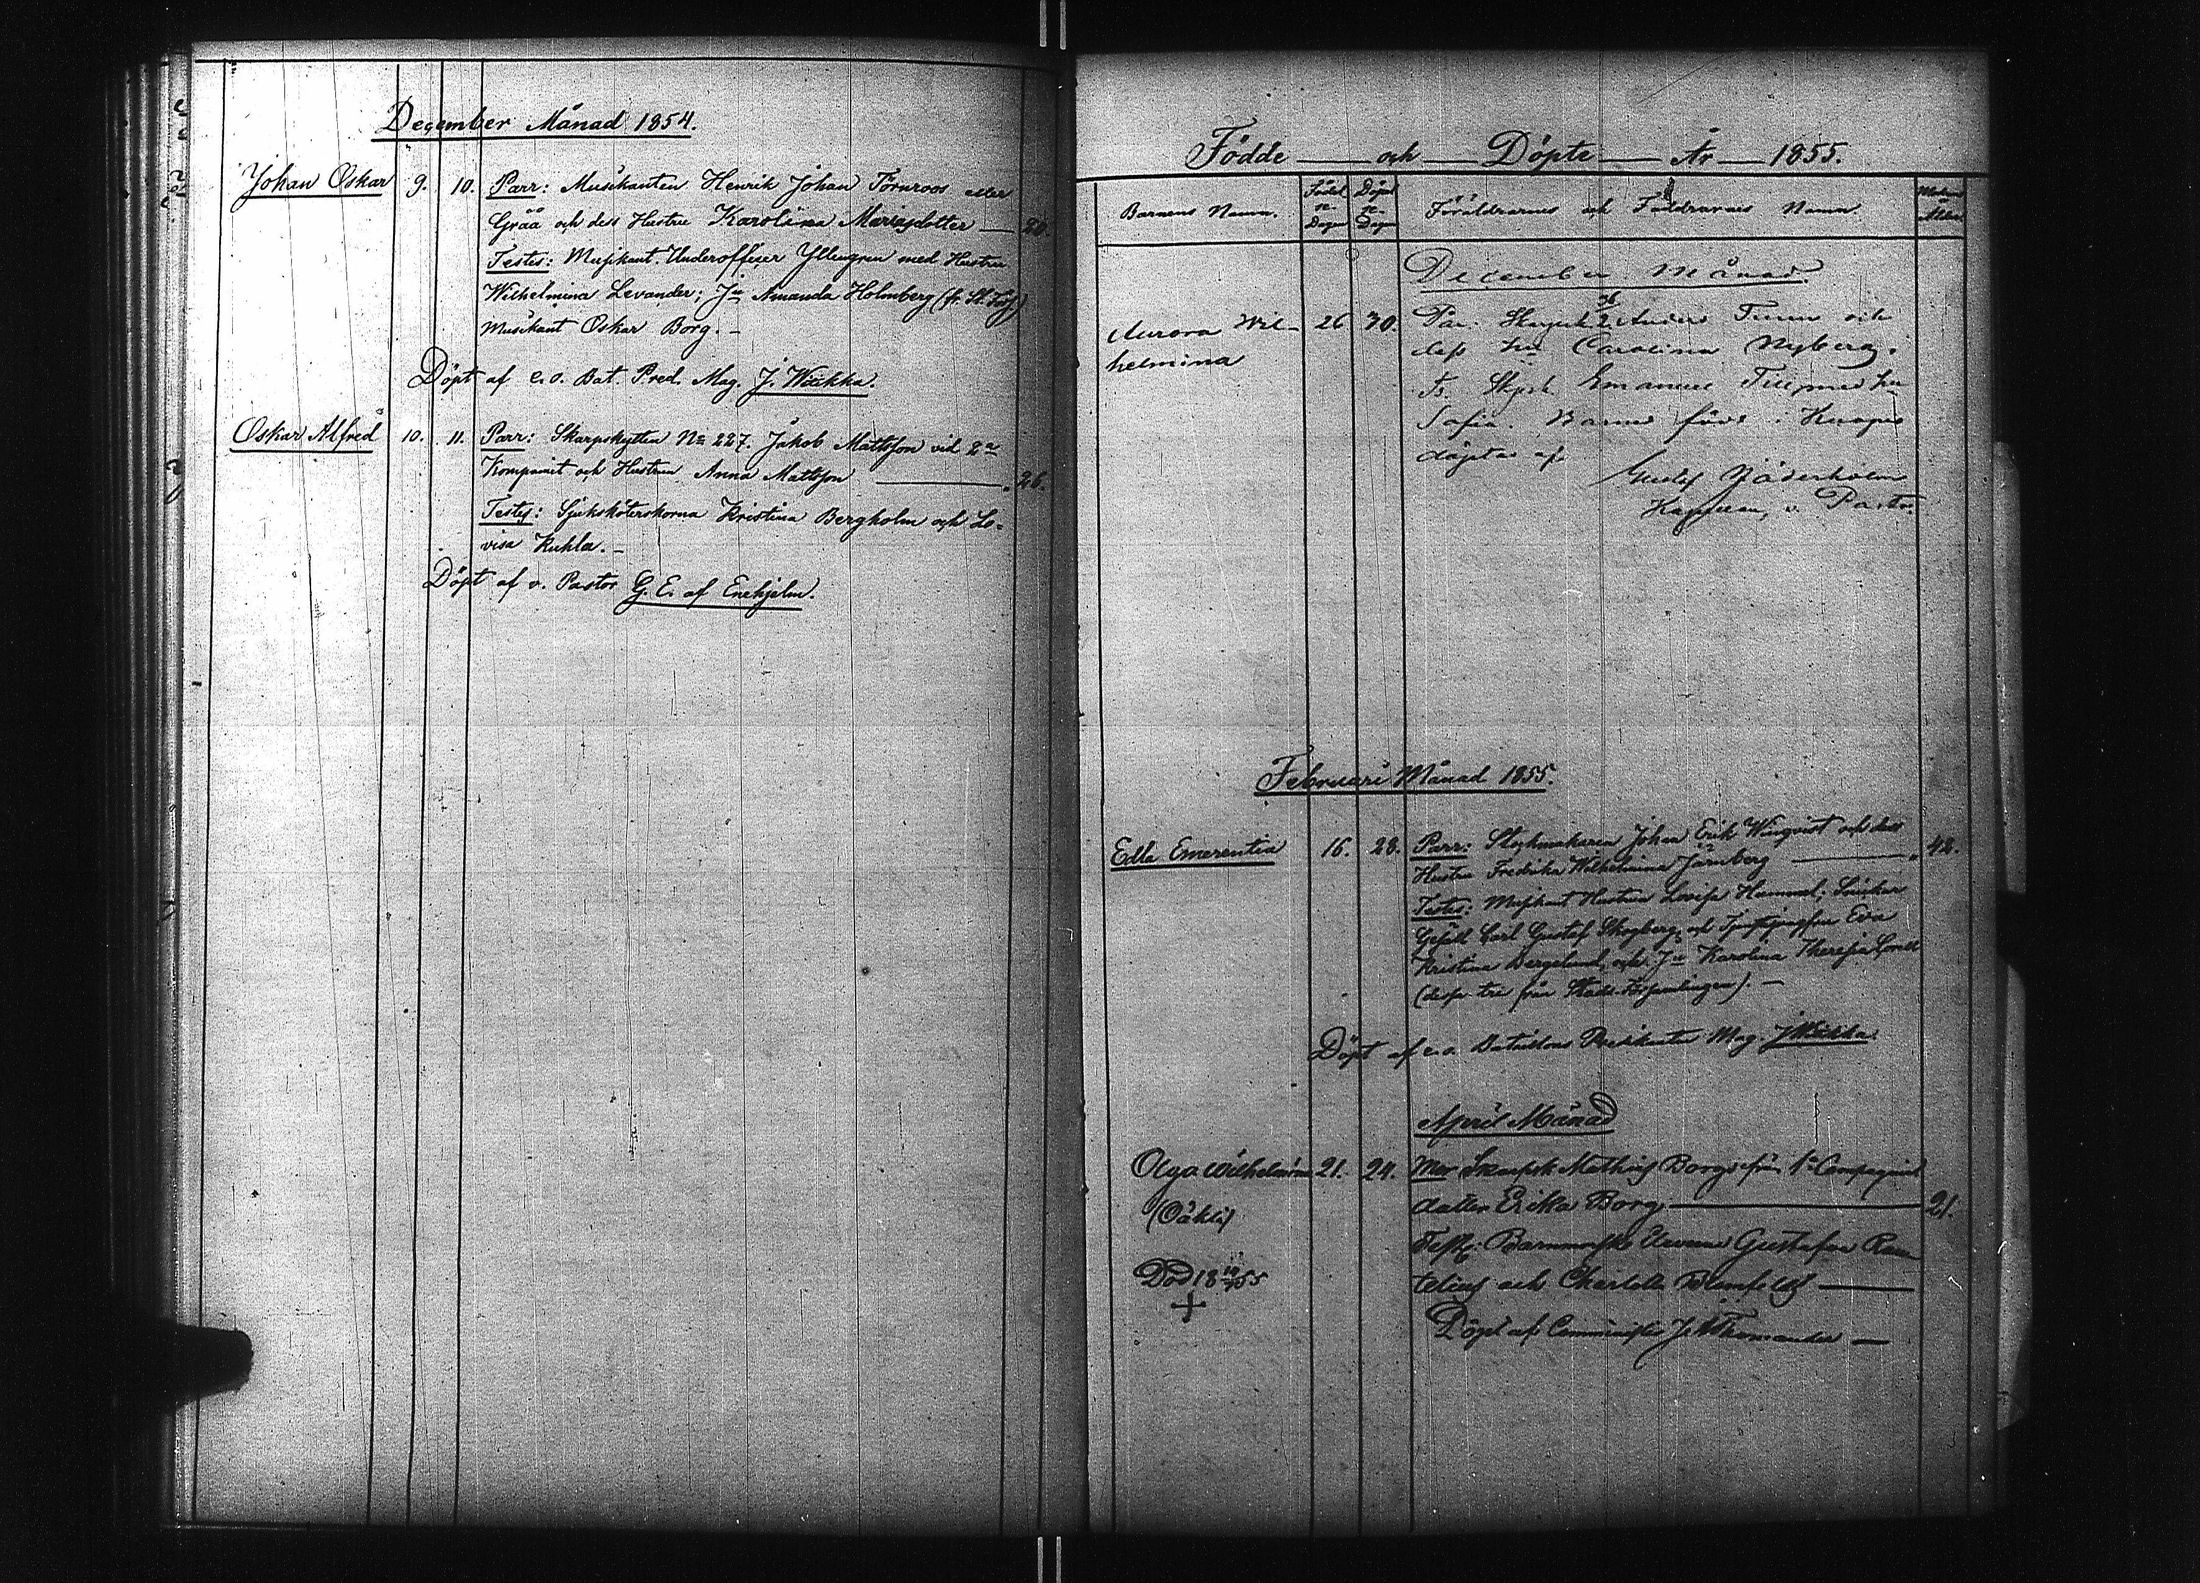 December Månad 1854.
Johan Oskar 9. 10. Parr: Musikanten Henrik Johan Törnroos eller
Gråå och dess Hustru Karolina Mariasdotter — 20.
Testes: Musikant. Underofficer Yllengren med Hustru
Wilhelmina Levander; Jn Amanda Holmberg (fr. St. Förs)
Musikant Oskar Borg. –
Döpt af e. o. Bat. Pred. Mag. J. Wiikka.
Oskar Alfred 10. 11. Parr: Skarpskytten No 227. Jakob Mattsson vid 2a
Kompaniet och Hustrun Anna Mattsson — 26.
Testes: Sjuksköterskorna Kristina Bergholm och Lo-
visa Kuhla. –
Döpt af v. Pastor G. E. af Enehjelm.
Födde — och — Döpte — År — 1855.
Barnens Namn. Födel se- Dagen Döpel se- Dagen Föräldrarnes och Faddrarnes Namn Modrens Ålder
December Månad.
Aurora Wil- 26 30. Par: Skarpsk. Anders och
helmina dess hu Carolina Nyberg.
Ts. Skpsk. Emanuel med hu
Sofia. Barnet född i
döptes af
Gustaf Söderholm
v. Pastor.
Februari Månad 1855.
Edla Emerentia 16. 28. Parr: Stockmakaren Johan Erik Winqvist och dess
Hustru Fredrika Wilhelmina Järnberg — 42.
Testes: Musikant Hustrun Lovisa Hammal; Snickar
Gesäll Carl Gustaf Skogberg och Eva
Kristina Bergelund, och Jn Karolina Theresia
(dessa tre från Stads-församlingen). –
Döpt af e. o. Bataillons Predikanten Mag. J Wiikka.
April Månad
Olga Wilhelmina 21. 24. Mor Skarpsk Mathias Borgs från 1a Compagniet
(Oäkta) dotter Erika Borg — 21.
Test: Gustafva
Död 18 55 och —
+
Döpt af Thomander —